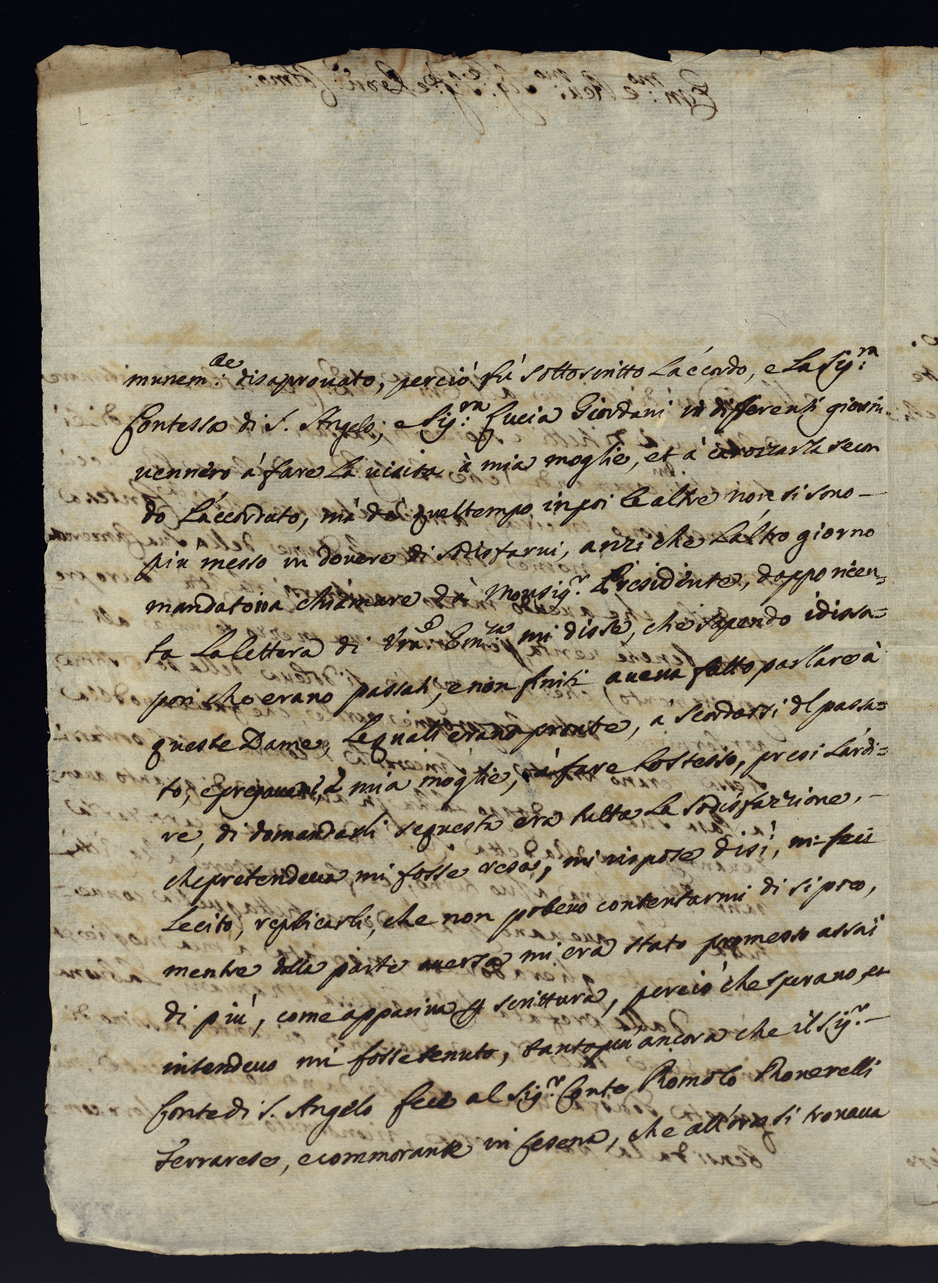 munem:te disaprouato, perciò fù sottoscritto l'accordo, e la Sig:ra
Contessa di S. Angelo, e Sig:ra Lucia Giordani in differenti giorni
uennero à fare la uisita à mia moglie, et à carozzarla secon
do l'accordato, mà dà quel tempo in poi le altre non si sono
più messo in douere di sodisfarui, anzi che l'altro giorno
mandatomi a chiamare dà Monsig:r Presidente, doppo riceu=
ta la lettera di Vra Em:za mi disse, che sapendo i dissa=
pori che erano passati, e non finiti aueua fatto parlare à
queste Dame, le quali erano pronte, a scordarsi del passa=
to, e pregaua à mia moglie, à fare lo stesso, presi l'ardi=
re, di domandarli se questa era tutta la sodisfazzione,
che pretendeua mi fosse resa, mi rispose di sì, mi feci
lecito, replicarli, che non poteuo contentarmi di sì poco,
mentre dalla parte auersa mi era stato promesso assai
di più, come appariua p scrittura, perciò che sperauo, et
intendeuo mi fosse tenuto, tanto più ancora che il Sig:r
Conte di S. Angelo fece al Sig:r Conte Romolo Rouerelli
Ferrarese, e commorante in Cesena, che all'ora si trouaua